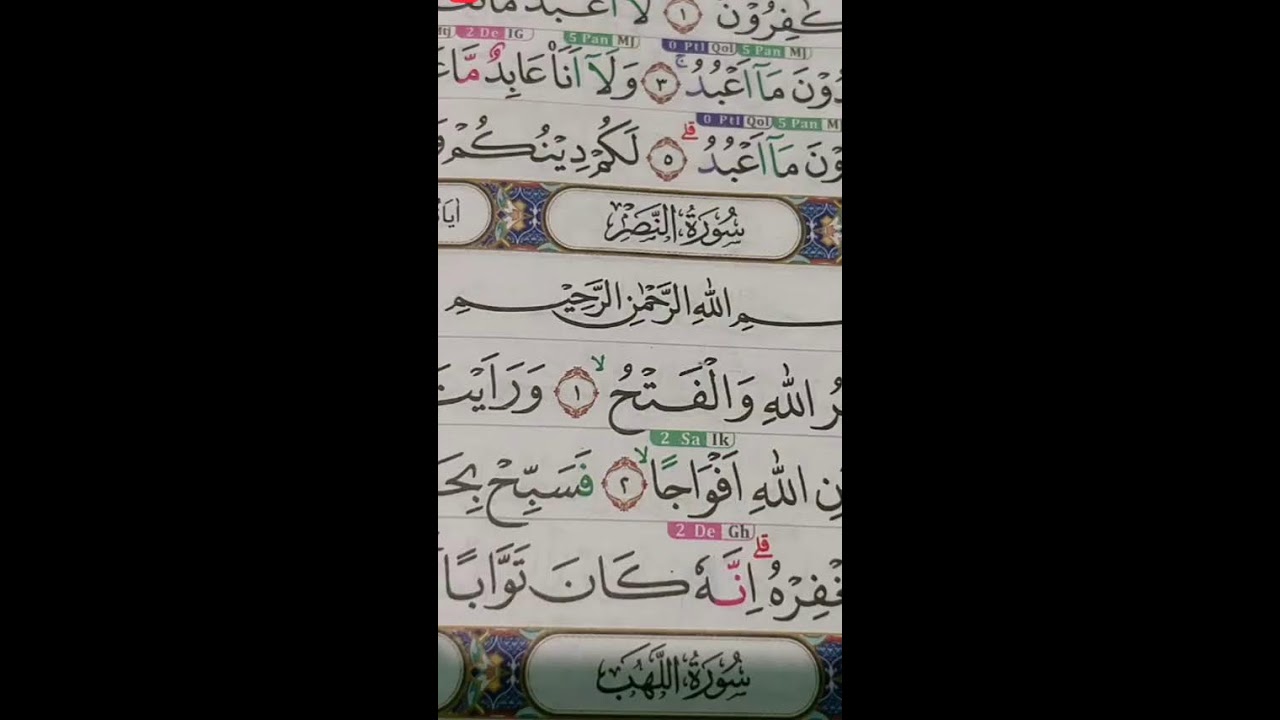 كٰفِرُوْنَ ١ لَآ اَعْبُدُ مَا
2 De IG 5 Pan MJ 0 Ptl Qol 5 Pan MJ
مَآ اَعْبُدُۚ ٣ وَلَآ اَنَا۠ عَابِدٌ مَّا
0 Ptl Qol 5 Pan M
مَآ اَعْبُدُۗ ٥ لَكُمْ دِيْنُكُمْ
سُوْرَةُ النَّصْرِ
اللّٰهِ الرَّحْمٰنِ الرَّحِيْمِ
اللّٰهِ وَالْفَتْحُۙ ١ وَرَاَيْتَ
2 Sa Ik
اللّٰهِ اَفْوَاجًاۙ ٢ فَسَبِّحْ
2 De Gh
اِنَّهٗ كَانَ تَوَّابًا
سُوْرَةُ اللَّهَبِ